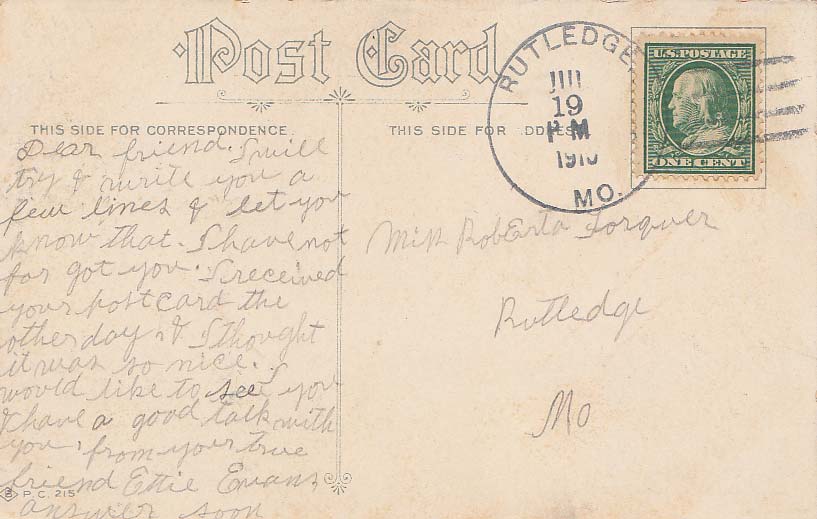 Post Card
THIS SIDE FOR CORRESPONDENCE.
THIS SIDE FOR DDRESS
RUTLEDGE
JUL
19
P M
1910
MO.
U.S. POSTAGE
ONE CENT
Dear friend. I will
try & write you a
few lines & let you
know that. I have not
for got you. I received
your post card the
other day & I thought
it was so nice. I
would like to see you
& have a good talk with
you. from your true
friend Ettie Evans
answer soon
P.C. 215
Miss RobErta
Rutledge
Mo